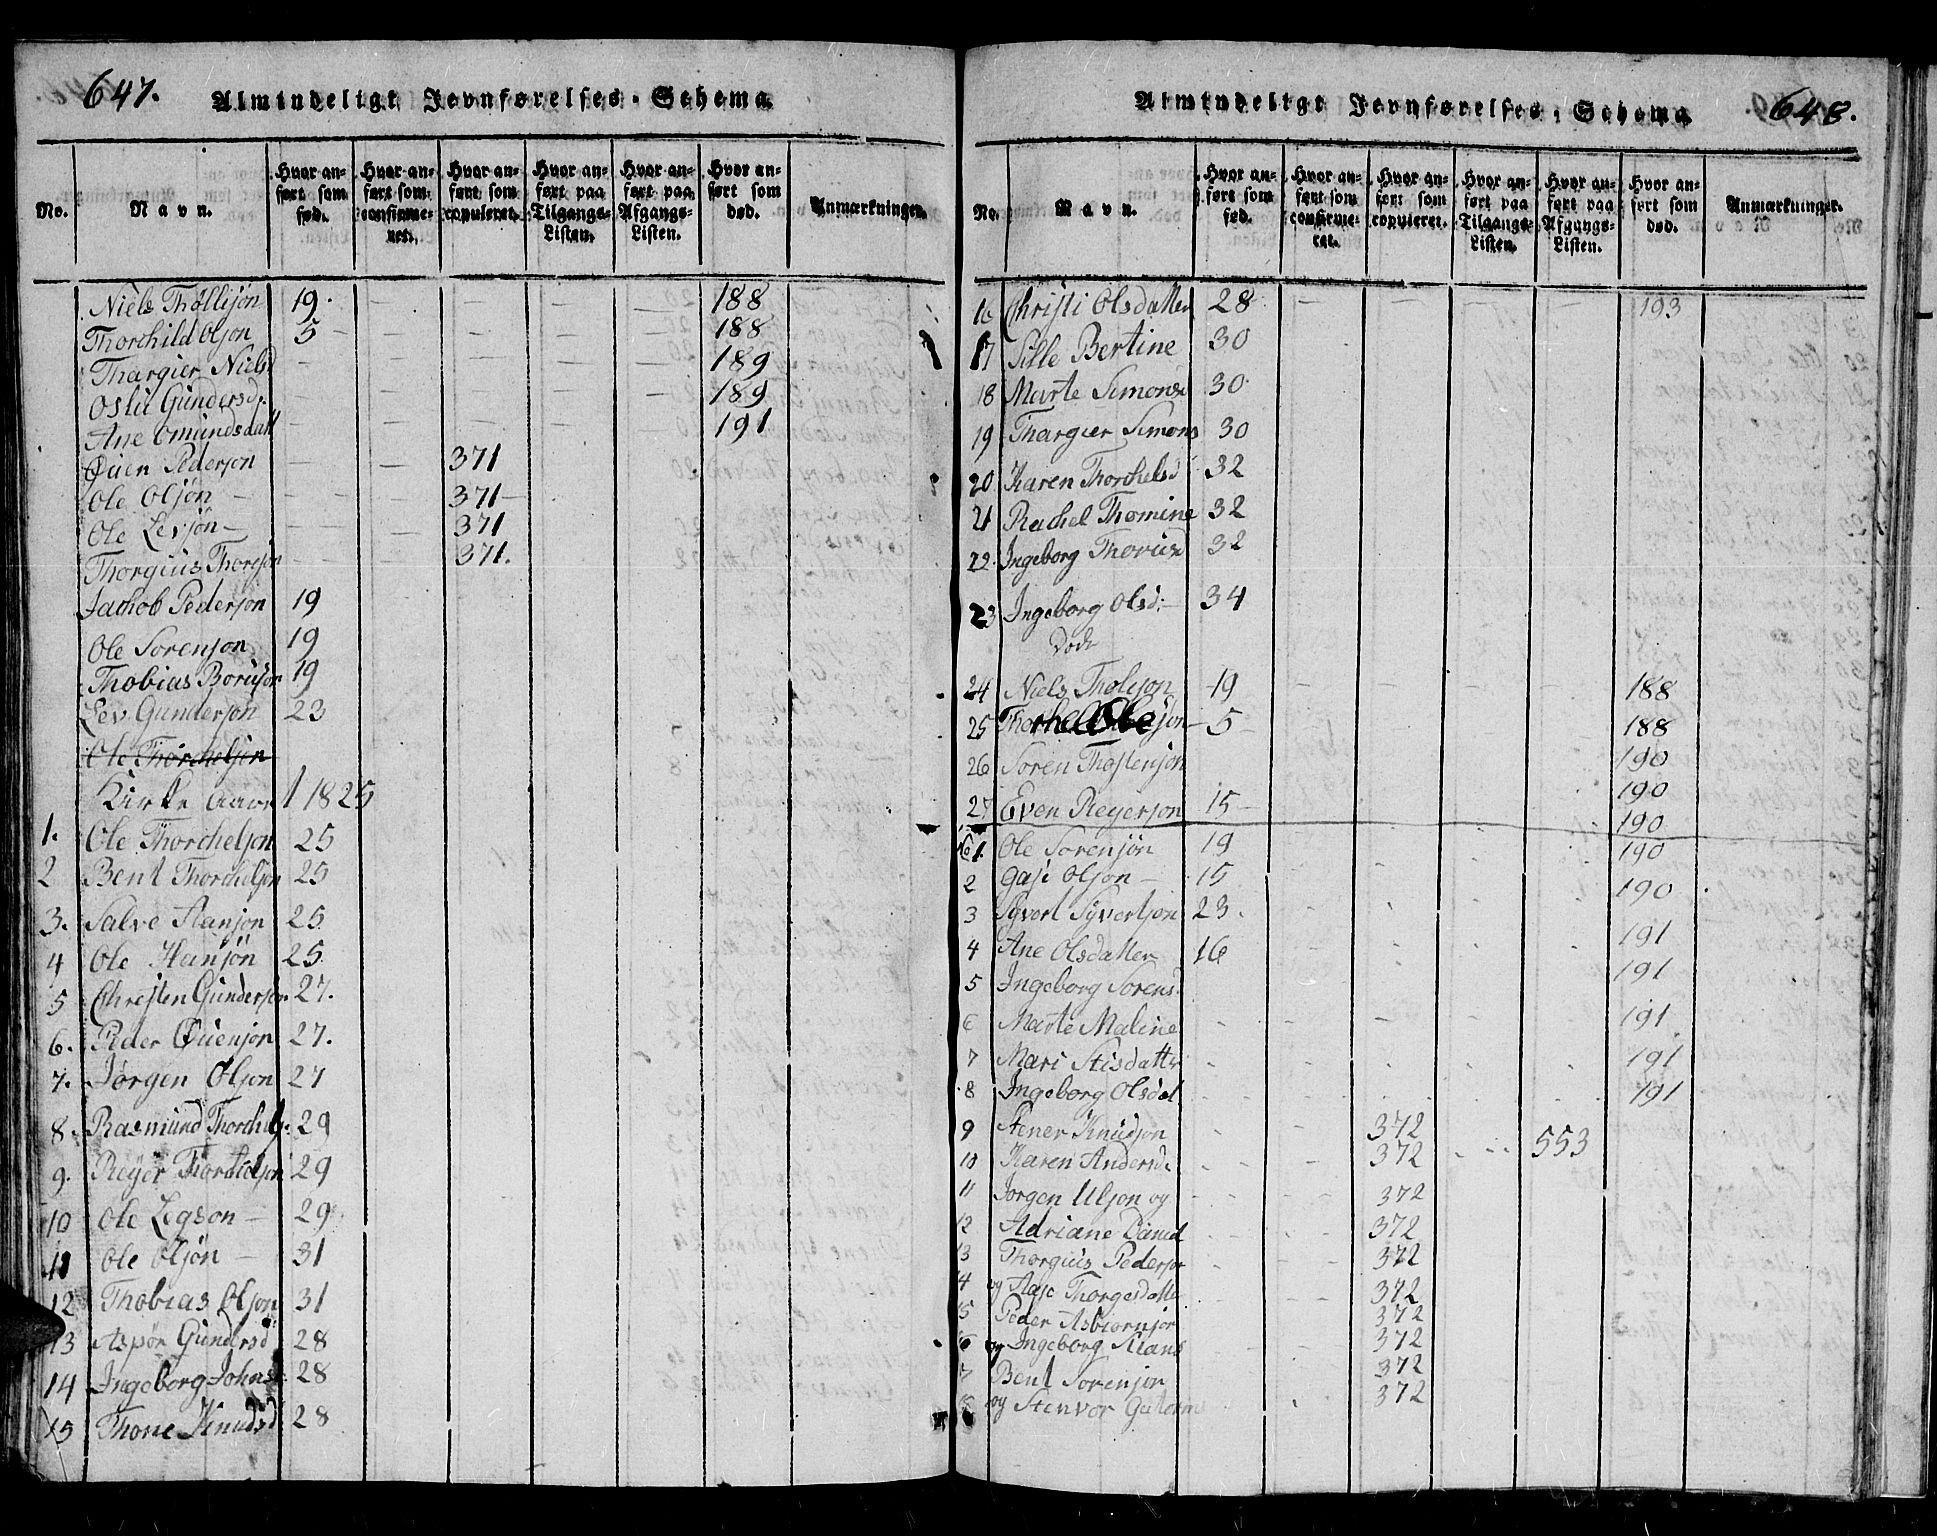 647.
Almindeligt Jevnførelses-Schema
No.
Navn.
Hvor anført som fød.
Hvor anført som confirmeret.
Hvor anført som copuleret.
Hvor anført paa Tilgangs-Listen.
Hvor anført paa Afgangs-Listen.
Hvor anført som død.
Anmærkninger.
Niels Thollisøn 19. 188
Thorchild Olson 5 188
Thargier Nielsd 189
Oslu Gundersd. 189
Ane Omundsdatt 191
Øuen Pederson 371
Ole Olsøn 371
Ole Levsøn 371
Thorgius Thorsøn 371.
Jachob Pederson 19
Ole Sorenson 19
Thobias Boruson 19
Lev Gunderson 23
Ole Thorchelsen
Kirke Aaret 1825
1. Ole Thorchelson 25
2 Bent Thorchelson 25
3. Salve Hanson 25
4 Ole Hansøn 25.
5 Christen Gunderson 27.
6. Peder Øuenson 27.
7. Jørgen Olson 27
8. Rasmund Thorchels. 29
9. Reyer Thorchelson 29
10 Ole Legson 29
11 Ole Olsøn 31
12 Thobias Olson 31
13 Aspør Gundersd 28
14 Ingeborg Johnsd. 28
15 Thone Knudsd 28
Almindeligt Jevnførelses-Schema
648.
No.
Navn.
Hvor anført som fød.
Hvor anført som confirmeret.
Hvor anført som copuleret.
Hvor anført paa Tilgangs-Listen.
Hvor anført paa Afgangs-Listen.
Hvor anført som død.
Anmærkninger.
16 Christi Olsdatter 28 193
17 Sille Bertine 30
18 Marte Simonsd 30
19 Thargier Simons 30
20 Karen Thorchelsd 32
21 Rachel Thomine 32
22. Ingeborg Thoviusd 32
23 Ingeborg Olsd. 34
Døde
24 Niels Tholison 19 188
25 5 188
26 Soren Thostenson 190
27 Even Reyerson 15 190
190
No 1. Ole Sorensøn 19 190
2 Gasi Olson 15 190
3 Syvert Syvertson 23. 191
4 Ane Olsdatter 16 191
5 Ingeborg Sorensd.
6 Marte Maline 191
7 Mari Stisdatter 191
8 Ingeborg Olsdat 191
9 Stener Knudson 372
10 Karen Andersd. 372 553
11 Jorgen Ulson og 372
12 Adriane Daniel 372
13 Thorgius Pederson 372
14 og Aase Thorgesdatter 372
15 Peder Asbiornson 372
16 og Ingeborg Hans 372
17 Bent Sorenson 372
18 og Stenvor Gutorm 372